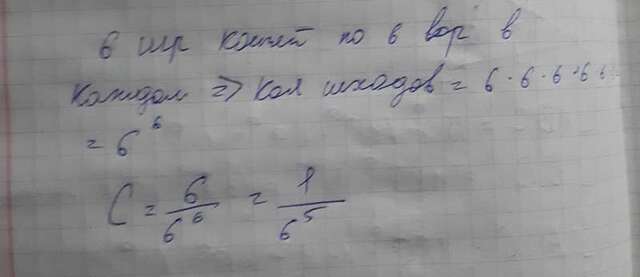 6 игр костей по 6 вар в
каждом => кол исходов = 6 · 6 · 6 · 6 6
= 6^6
C = 6/6^6 = 1/6^5